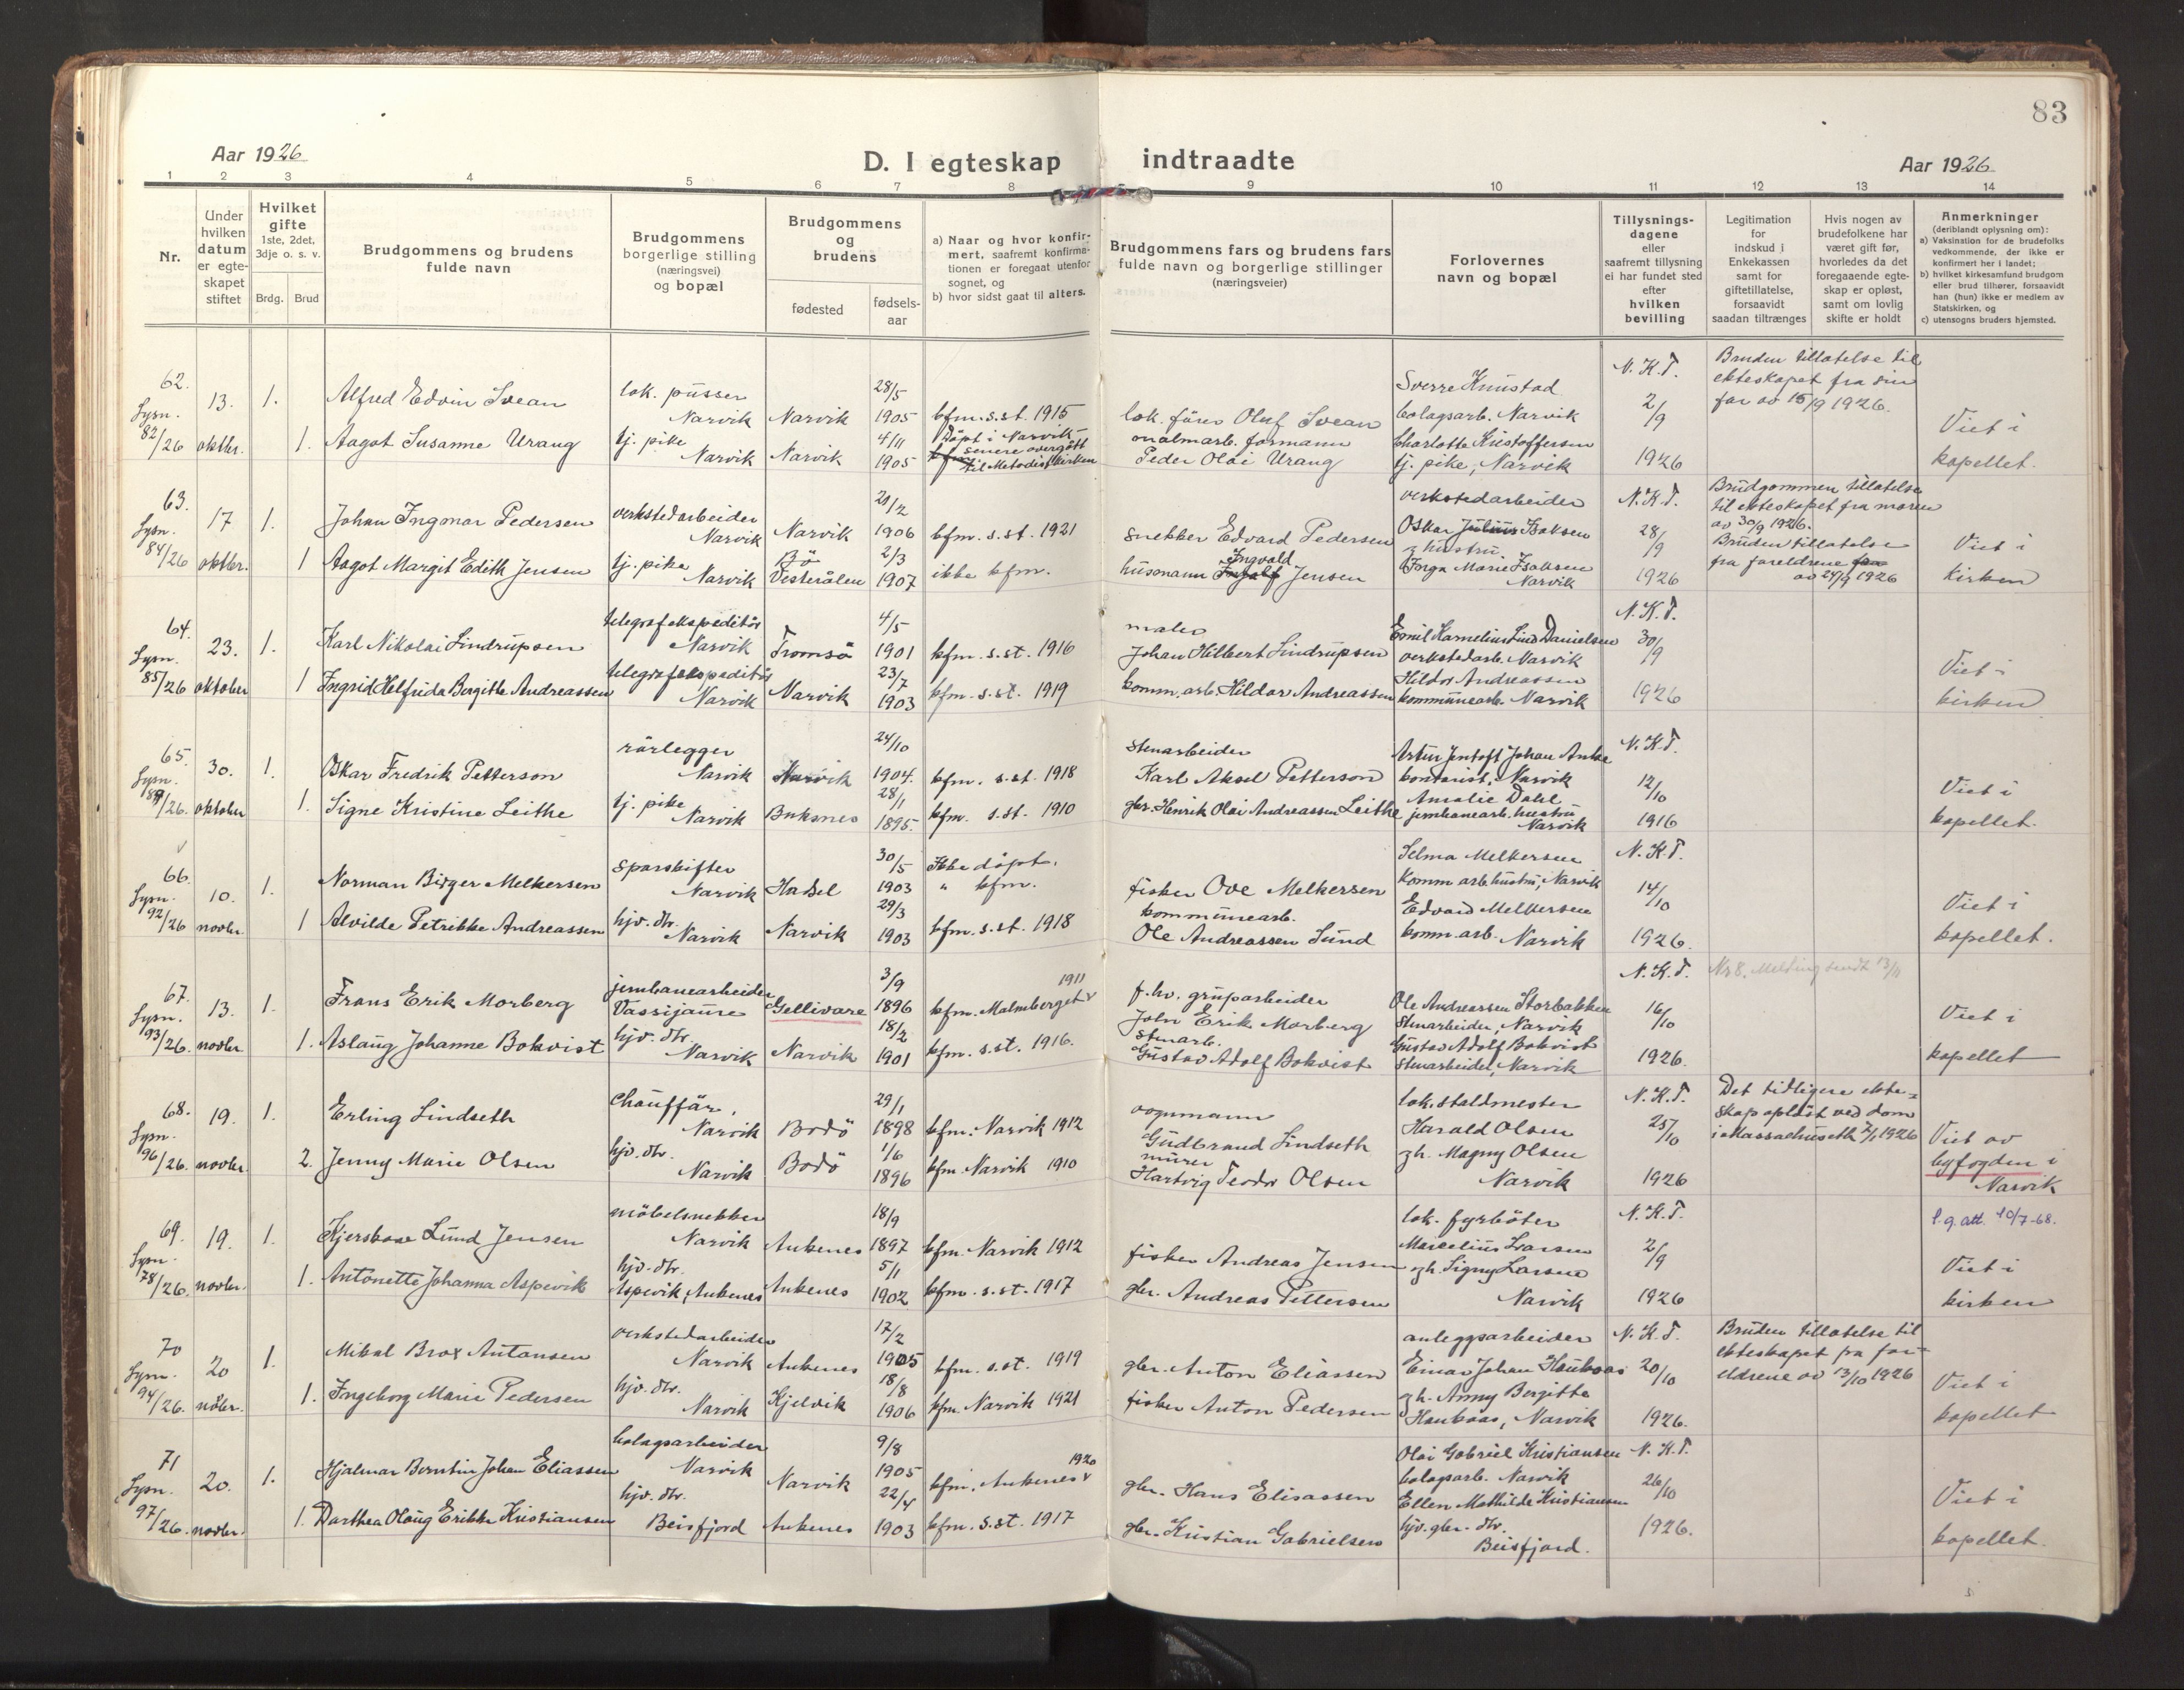 83
Aar 1926
D. I egteskap indtraadte
Aar 1926
1 2 3 4 5 6 7 8 9 10 11 12 13 14
Nr.
Under hvilken datum er egteskapet stiftet
Hvilket gifte 1ste, 2det, 3dje o. s. v.
Brdg. Brud
Brudgommens og brudens fulde navn
Brudgommens borgerlige stilling (næringsvei) og bopæl
Brudgommens og brudens
fødested
fødselsaar
a) Naar og hvor konfirmert, saafremt konfirmationen er foregaat utenfor sognet, og
b) hvor sidst gaat til alters.
Brudgommens fars og brudens fars fulde navn og borgerlige stillinger (næringsveier)
Forlovernes navn og bopæl
Tillysningsdagene eller saafremt tillysning ei har fundet sted efter hvilken bevilling
Legitimation for indskud i Enkekassen samt for giftetillatelse, forsaavidt saadan tiltrænges
Hvis nogen av brudefolkene har været gift før, hvorledes da det foregaaende egteskap er opløst, samt om lovlig skifte er holdt
Anmerkninger (deriblandt oplysning om):
a) Vaksination for de brudefolks vedkommende, der ikke er konfirmert her i landet;
b) hvilket kirkesamfund brudgom eller brud tilhører, forsaavidt han (hun) ikke er medlem av Statskirken, og
c) utensogns bruders hjemsted.
62. Lysn. 82/26 13. oktbr. 1.
Alfred Edvin Svean lok. pusser Narvik Narvik 28/5 1905 kfm. s. st. 1915
lok. fører Oluf Svean
Sverre Knustad bolagsarb. Narvik
N. K. T. 2/9 1926
Bruden tillatelse til ekteskapet fra sin far av 15/9 1926.
1. Aagot Susanne Urang tj. pike Narvik Narvik 4/11 1905 Döpt i Narvik senere overgått til Metodistkirken
malmarb. formann Peder Olai Urang
Charlotte Kristoffersen tj. pike, Narvik
Viet i kapellet.
63. Lysn. 84/26 17 oktbr. 1.
Johan Ingmar Pedersen verkstedarbeider Narvik Narvik 21/2 1906 kfm. s. st. 1921
snekker Edvard Pedersen
verkstedarbeider Oskar Julius Isaksen g. hustru Inga Marie Isaksen Narvik
N. K. T. 28/9 1926
Brudgommen tillatelse til ekteskapet fra moren av 30/9 1926.
Bruden tillatelse fra foreldrene av 24/9 1926
1 Aagot Margit Edith Jensen tj. pike Narvik Bö Vesterålen 2/3 1907 ikke kfm.
husmann Ingvald Jensen
Viet i kirken
64. Lysn. 85/26 23. oktober 1.
Karl Nikolai Lindrupsen telegrafekspeditör Narvik Tromsö 4/5 1901 kfm. s. st. 1916
maler Johan Hilbert Lindrupsen
Emil Kornelius Lind Danielsen verkstedarb. Narvik
N. K. T. 30/9 1926
1 Ingrid Helfrida Bergitte Andreassen telegrafekspeditör Narvik Narvik 23/7 1903 kfm. s. st. 1919
komm. arb. Hildor Andreassen
Hildor Andreassen kommunearb. Narvik
Viet i kirken
65. Lysn. 89/26. 30. oktober 1.
Oskar Fredrik Petterson rörlegger Narvik Narvik 24/10 1904. kfm. s. st. 1918
stenarbeider Karl Aksel Petterson
Artur Jentoft Johan Anke kontorist, Narvik
N. K. T. 12/10 1916
1. Signe Kristine Leithe tj. pike Narvik Buksnes 28/1 1895. kfm. s. st. 1910
gbr. Henrik Olai Andreassen Leithe
Amalie Dahl jernbanearb. hustru Narvik
Viet i kapellet.
66. Lysn. 92/26 10. novbr. 1.
Norman Birger Melkersen sporskifter Narvik Hadsel 30/5 1903 Ikke döpt. " kfm.
fisker Ove Melkersen
Selma Melkersen komm arb hustru, Narvik
N. K. T. 14/10 1926.
1 Alvilde Petrikke Andreassen hjv. dtr. Narvik Narvik 29/3 1903 kfm. s. st. 1918
kommunearb. Ole Andreassen Lund
Edvard Melkersen komm. arb. Narvik
Viet i kapellet.
67. Lysn. 93/26. 13. novbr. 1.
Frans Erik Morberg jernbanearbeider Vassijaure Gellivare 3/9 1896 kfm. Malmberget 1911
f. hv. gruparbeider John Erik Morberg
Ole Andreassen Storbakken stenarbeider, Narvik
N. K. T. 16/10 1926.
Nr 8. Melding sendt 13/11
1. Aslaug Johanne Bokvist hjv. dtr. Narvik Narvik 18/2 1901 kfm. s. st. 1916.
stenarb. Gustav Adolf Bokvist
Gustav Adolf Bokvist stenarbeider, Narvik
Viet i kapellet
68. Lysn. 96/26. 19. novbr. 1.
Erling Lindseth chauffär, Narvik Bodö 29/1 1898 kfm. Narvik 1912
vognmann Gudbrand Lindseth
lok. staldmester Harald Olsen gh. Magny Olsen Narvik
N. K. T. 25/10 1926
Det tidligere ekteskap oplöst ved dom i Massachuseth 7/1 1926
2. Jenny Marie Olsen hjv. dtr. Narvik Bodö 1/6 1896 kfm. Narvik 1910
murer Hartvig Teodor Olsen
Viet av byfogden i Narvik
69. Lysn. 78/26. 19. novbr. 1.
Kjersbaae Lund Jensen möbelsnekker Narvik Ankenes 18/9 1897 kfm. Narvik 1912
fisker Andreas Jensen
lok. fyrböter Marcelius Larsen gh. Signy Larsen Narvik
N. K. T. 2/9 1926
l. g. att. 10/7-68.
1. Antonette Johanna Aspevik hjv. dtr. Aspevik, Ankenes Ankenes 5/1 1902 kfm. s. st. 1917
gbr. Andreas Pettersen
Viet i kirken
70 Lysn. 94/26. 20 nober. 1.
Mikal Brox Antonsen verkstedarbeider Narvik Ankenes 17/2 1905 kfm. s. st. 1919
gbr. Anton Eliassen
anleggsarbeider Einar Johan Haukaas gh. Anny Bergitte Haukaas, Narvik
N. K. T. 20/10 1926.
Bruden tillatelse til ekteskapet fra foreldrene av 13/10 1926
1. Ingeborg Marie Pedersen hjv. dtr. Narvik Kjelvik 18/8 1906 kfm. Narvik 1921
fisker Anton Pedersen
Viet i kapellet
71 Lysn. 97/26. 20. novbr. 1.
Hjalmar Berntin Johan Eliassen bolagsarbeider Narvik Narvik 9/8 1905 kfm. Ankenes 1920
gbr. Hans Elisassen
Olai Gabriel Kristiansen bolagsarb. Narvik
N. K. T. 26/10 1926.
1. Dorthea Olaug Erikke Kristiansen hjv. dtr. Beisfjord Ankenes 22/4 1903 kfm. s. st. 1917
gbr. Kristian Gabrielsen
Ellen Mathilde Kristiansen hjv. gbr. dtr. Beisfjord.
Viet i kapellet.